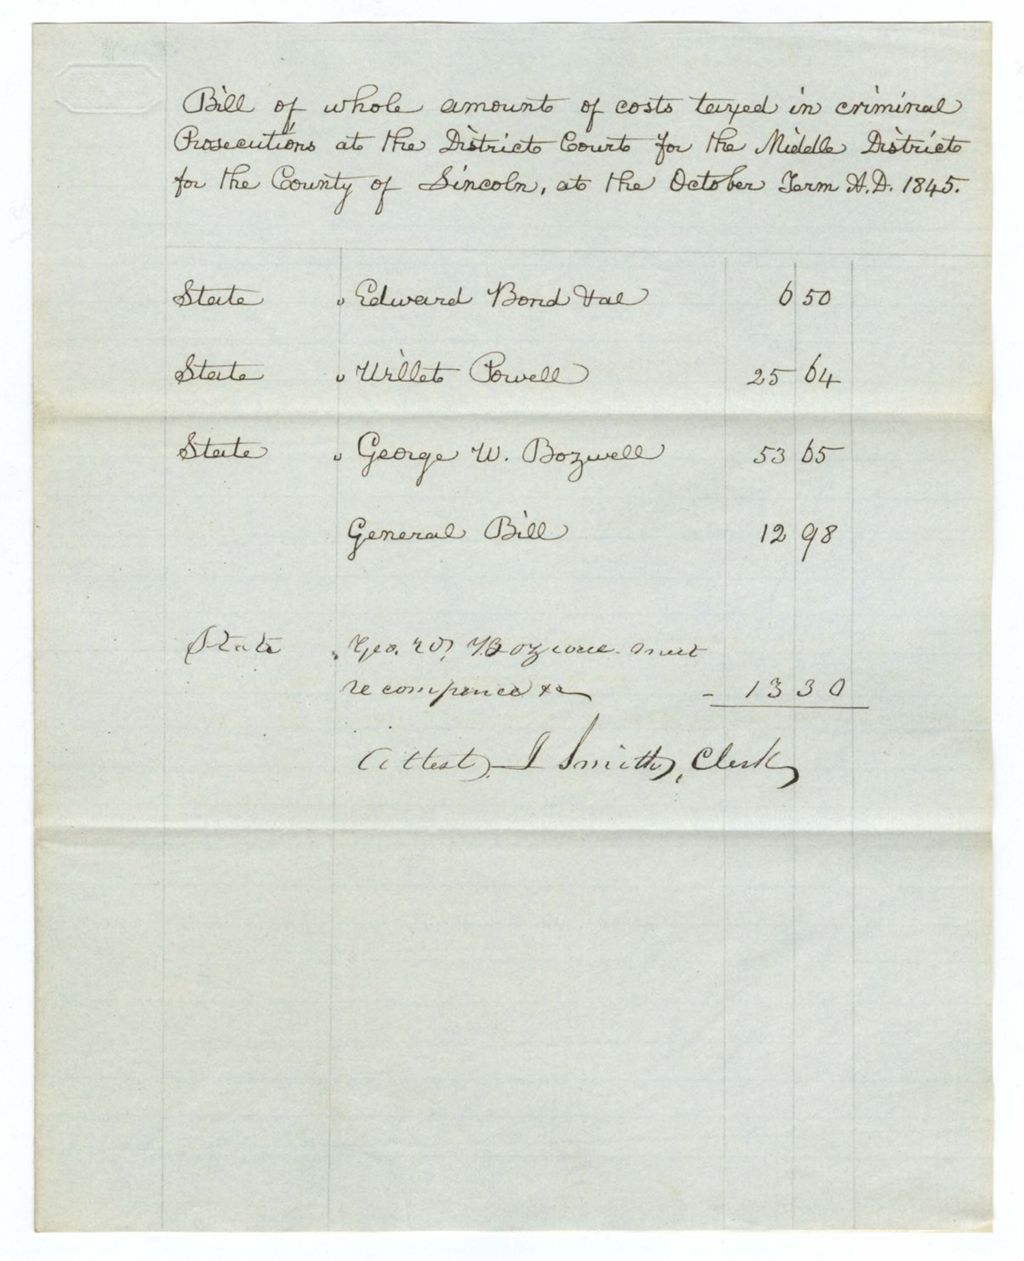 Bill of whole amount of costs taxed in criminal
Prosecutions at the District Court for the Middle District
for the County of Lincoln, at the October Term A.D. 1845.
State v Edward Bond et al 6 50
State v Willet Powell 25 64
State v George W. Bozwell 53 65
General Bill 12 98
State v Geo. W. Bozwell
recompence &c - 13 30
Attest, J Smith, Clerk